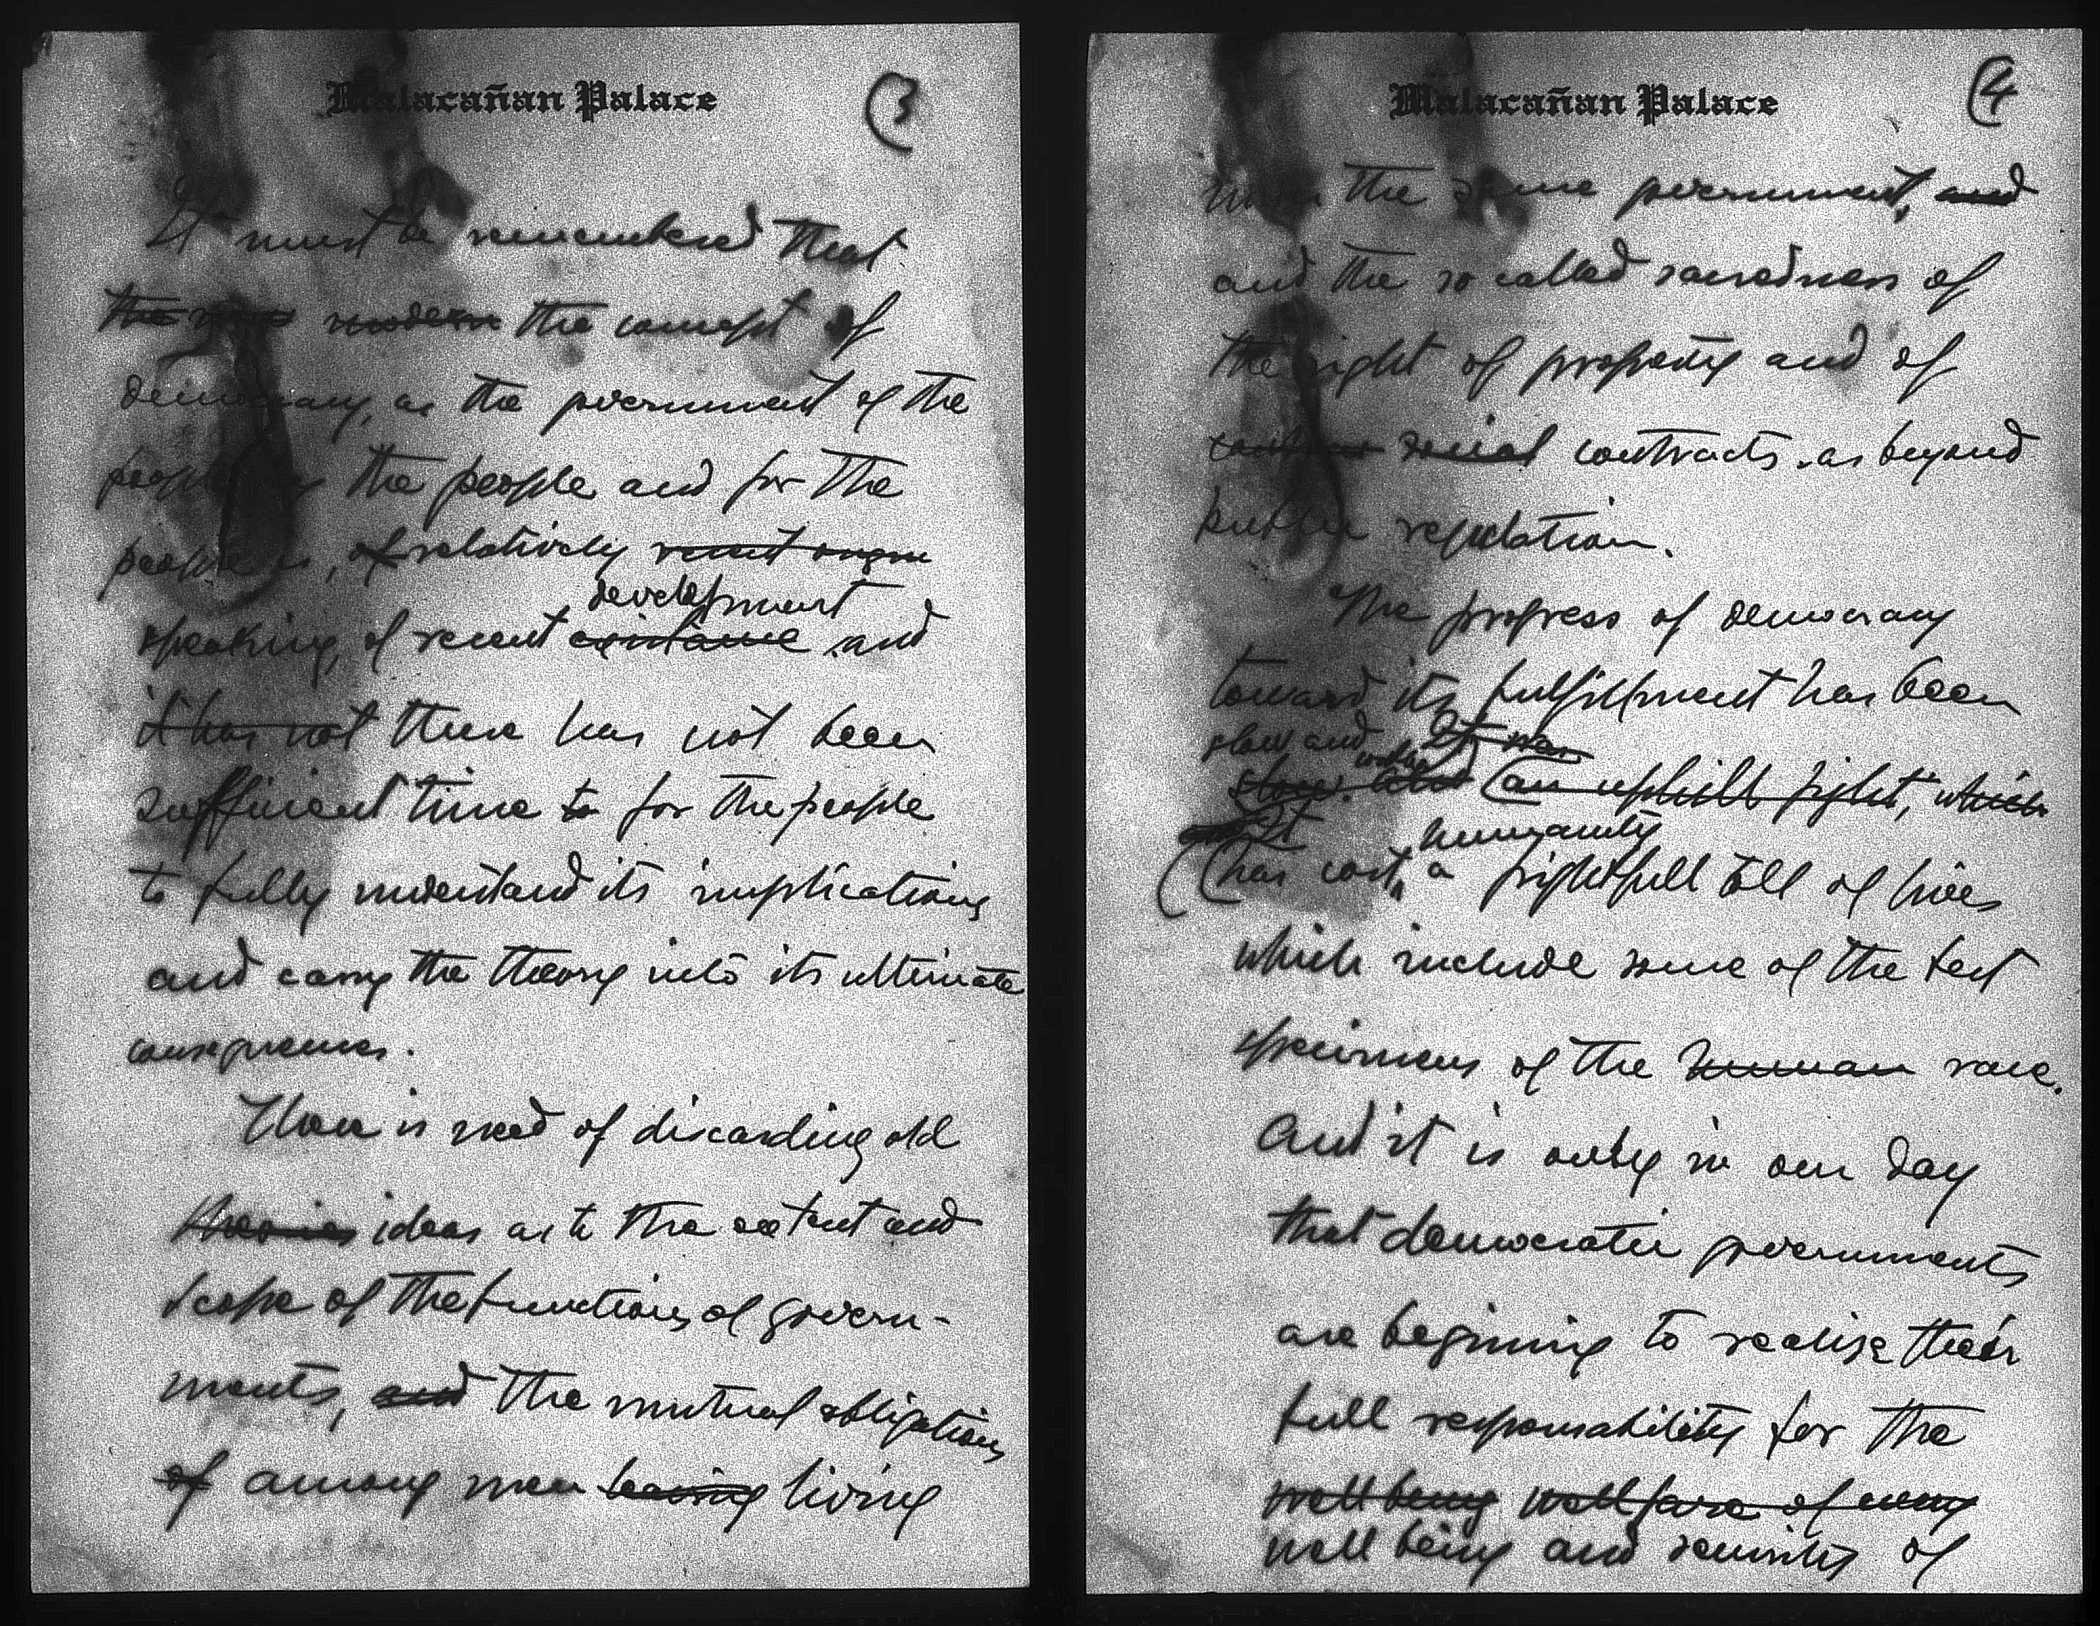 Malacañan Palace
(3
It must be remembered that
the modern the concept of
democracy, as the government of the
people by the people and for the
people is, of relatively recent origin
development
speaking, of recent existance and
it has not there has not been
sufficient time to for the people
to fully understand its implications
and carry the theory into its ultimate
consequences.
There is need of discarding old
theories ideas as to the extent and
scope of the functions of govern-
ments, and the mutual obligations
of among men leaving living
Malacañan Palace
(4
under the same government, and
and the so called sacredness of
the right of property and of
social contracts as beyond
public regulation.
The progress of democracy
toward its fulfillment has been
slow and It was
slow. and (an uphill fight, which
It humanity
((has cost a frightfull toll of lives
which include some of the best
specimens of the human race.
And it is only in our day
that democratic governments
are begining to realise their
full responsability for the
well being wellfare of every
well being and security of